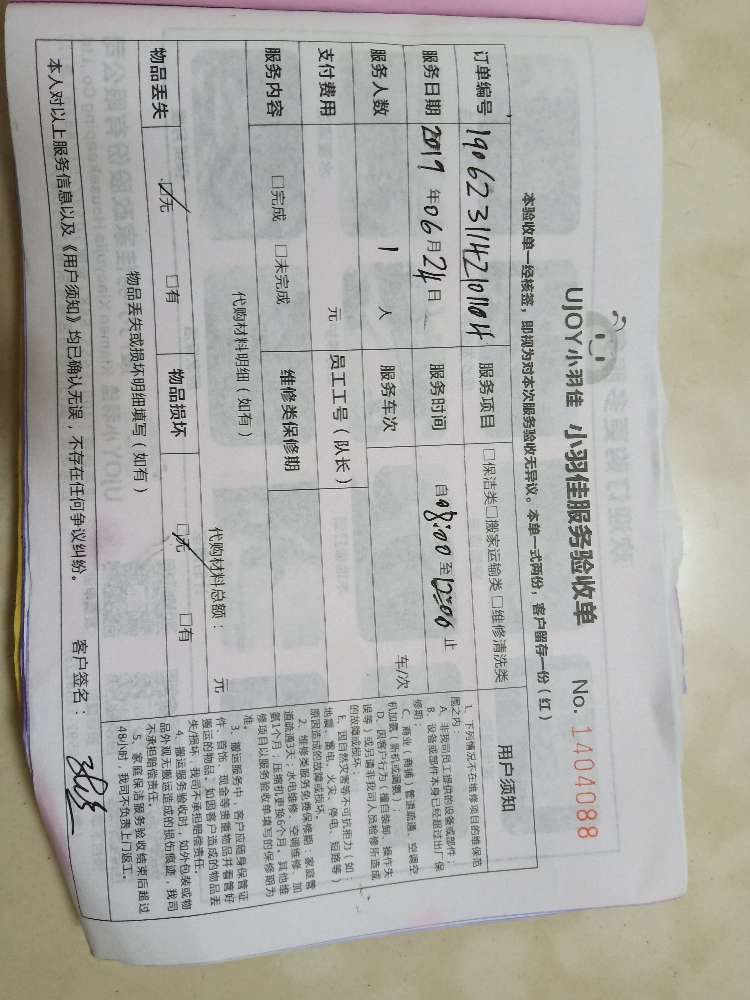 UJOY小羽佳 小羽佳服务验收单 No. 1404088
本验收单一经核签，即视为对本次服务验收无异议。本单一式两份，客户留存一份（红）
订单编号 服务项目 □保洁类□搬家运输类□维修清洗类
服务日期 2019 年 06 月 24 日 服务时间 自 08:00 至 12:00 止
服务人数 1 人 服务车次 车/次
支付费用 元 员工工号（队长）
服务内容 □完成 □未完成 维修类保修期
代购材料明细（如有） 代购材料总额： 元
物品丢失 ☑无 □有 物品损坏 ☑无 □有
物品丢失或损坏明细填写（如有）
本人对以上服务信息以及《用户须知》均已确认无误，不存在任何争议纠纷。 客户签名：
用户须知
1、下列情况不在维修项目的维保范
围之内：
A、非我司员工提供的设备或部件；
B、设备或部件本身已经超过出厂保
修期；
C、商业（商铺）管道疏通、空调空
机加氟、新机或漏氟；
D、因客户行为（擅自装卸、操作失
误等）或另请非我司人员检修所造成
的故障或损坏；
E、因自然灾害等不可抗拒力（如：
地震、雷电、火灾、停电、短路等）
原因造成的故障或损坏。
2、维修类服务免费保修期：家庭管
道疏通3天；水电维修、空调维修、加
氨1个月；压缩机更换6个月。其他维
修项目以服务验收单填写的保修期为
准。
3、搬运服务中，客户应随身保管证
件、首饰、现金等贵重物品并看管好
搬运的物品，如因客户造成的物品丢
失/损坏，我司不承担赔偿责任。
4、搬运服务验收时，如外包装或物
品外观无搬运造成的损伤痕迹，我司
不承担赔偿责任。
5、家庭保洁服务验收结束后超过
48小时，我司不负责上门返工。